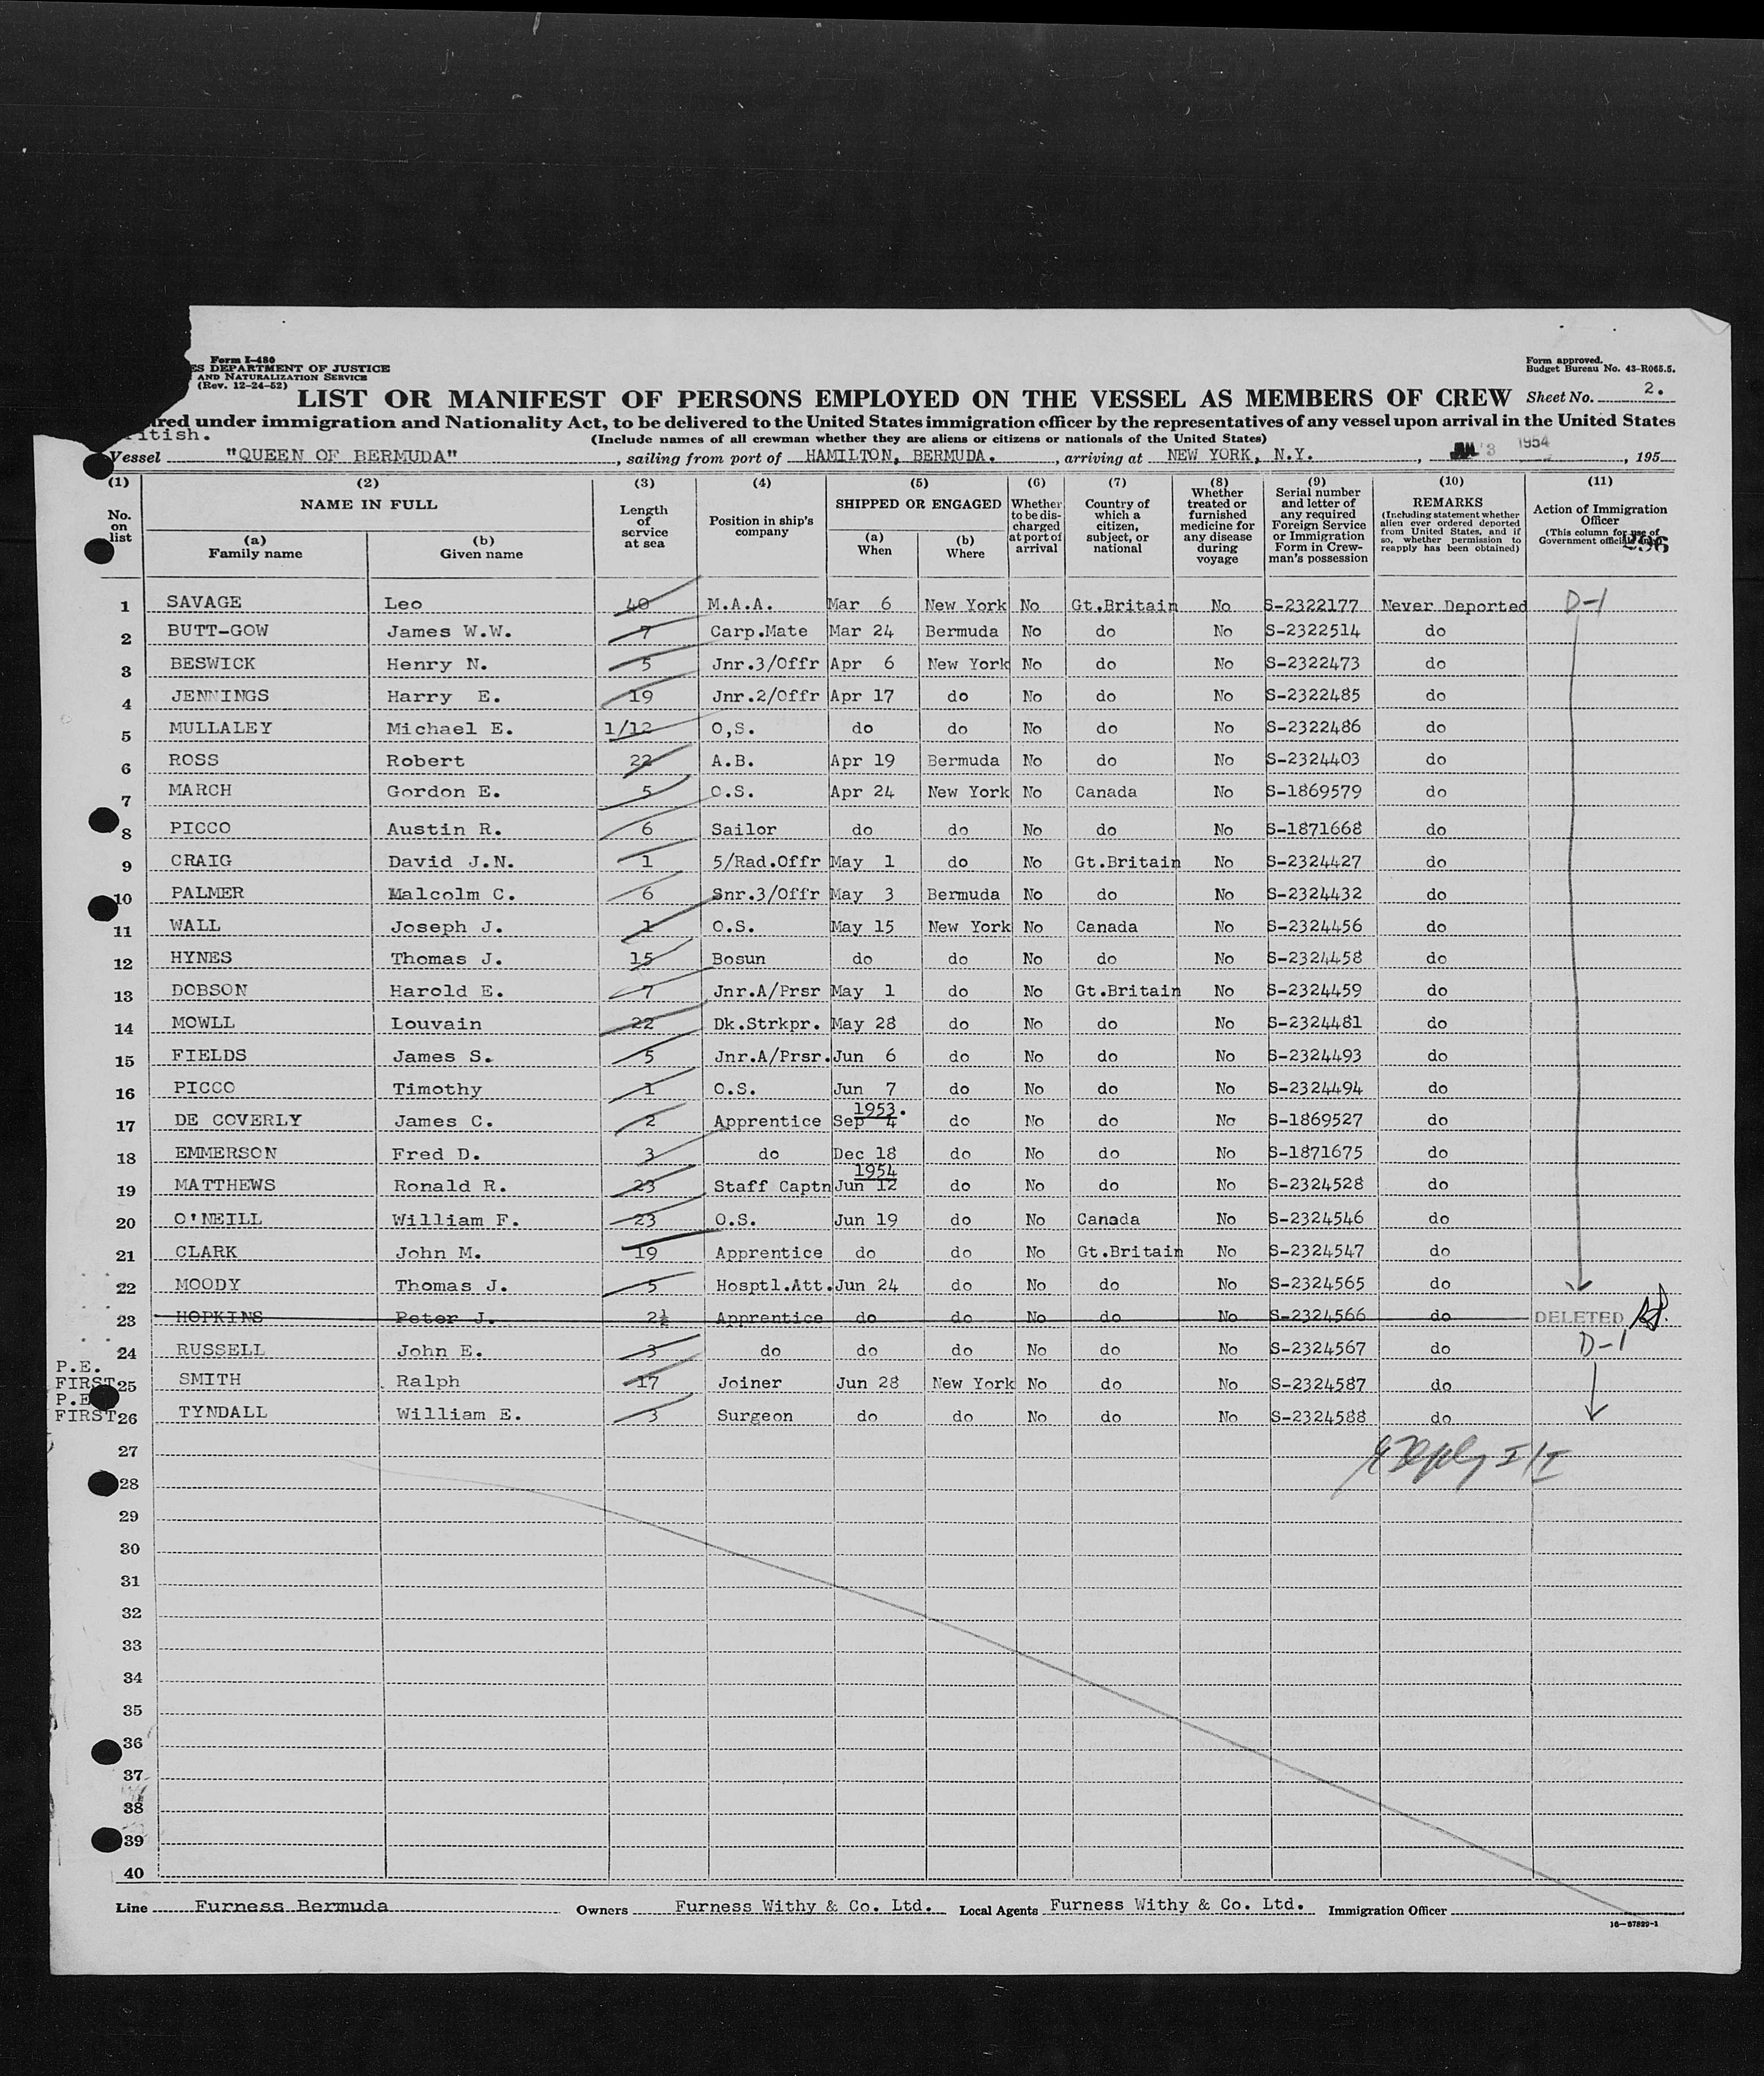 Form I-480
ES DEPARTMENT OF JUSTICE
AND NATURALIZATION SERVICE
(Rev. 12-24-52)
Form approved.
Budget Bureau No. 43-R065.5.
LIST OR MANIFEST OF PERSONS EMPLOYED ON THE VESSEL AS MEMBERS OF CREW Sheet No. 2.
ired under immigration and Nationality Act, to be delivered to the United States immigration officer by the representatives of any vessel upon arrival in the United States
itish.
(Include names of all crewman whether they are aliens or citizens or nationals of the United States)
Vessel "QUEEN OF BERMUDA", sailing from port of HAMILTON, BERMUDA., arriving at NEW YORK, N.Y., 3 1954, 195
(1) (2) (3) (4) (5) (6) (7) (8) (9) (10) (11)
No. on list
NAME IN FULL
(a) Family name
(b) Given name
Length of service at sea
Position in ship's company
SHIPPED OR ENGAGED
(a) When
(b) Where
Whether to be discharged at port of arrival
Country of which a citizen, subject, or national
Whether treated or furnished medicine for any disease during voyage
Serial number and letter of any required Foreign Service or Immigration Form in Crewman's possession
REMARKS
(Including statement whether alien ever ordered deported from United States, and if so, whether permission to reapply has been obtained)
Action of Immigration Officer
(This column for use of Government officials only)
296
1 SAVAGE Leo 40 M.A.A. Mar 6 New York No Gt.Britain No S-2322177 Never Deported D-1
2 BUTT-GOW James W.W. 7 Carp.Mate Mar 24 Bermuda No do No S-2322514 do
3 BESWICK Henry N. 5 Jnr.3/Offr Apr 6 New York No do No S-2322473 do
4 JENNINGS Harry E. 19 Jnr.2/Offr Apr 17 do No do No S-2322485 do
5 MULLALEY Michael E. 1/12 O,S. do do No do No S-2322486 do
6 ROSS Robert 22 A.B. Apr 19 Bermuda No do No S-2324403 do
7 MARCH Gordon E. 5 O.S. Apr 24 New York No Canada No S-1869579 do
8 PICCO Austin R. 6 Sailor do do No do No S-1871668 do
9 CRAIG David J.N. 1 5/Rad.Offr May 1 do No Gt.Britain No S-2324427 do
10 PALMER Malcolm C. 6 Snr.3/Offr May 3 Bermuda No do No S-2324432 do
11 WALL Joseph J. 1 O.S. May 15 New York No Canada No S-2324456 do
12 HYNES Thomas J. 15 Bosun do do No do No S-2324458 do
13 DOBSON Harold E. 7 Jnr.A/Prsr May 1 do No Gt.Britain No S-2324459 do
14 MOWLL Louvain 22 Dk.Strkpr. May 28 do No do No S-2324481 do
15 FIELDS James S. 5 Jnr.A/Prsr. Jun 6 do No do No S-2324493 do
16 PICCO Timothy 1 O.S. Jun 7 do No do No S-2324494 do
1953.
17 DE COVERLY James C. 2 Apprentice Sep 4 do No do No S-1869527 do
18 EMMERSON Fred D. 3 do Dec 18 do No do No S-1871675 do
1954
19 MATTHEWS Ronald R. 23 Staff Captn Jun 12 do No do No S-2324528 do
20 O'NEILL William F. 23 O.S. Jun 19 do No Canada No S-2324546 do
21 CLARK John M. 19 Apprentice do do No Gt.Britain No S-2324547 do
22 MOODY Thomas J. 5 Hosptl.Att. Jun 24 do No do No S-2324565 do
23 HOPKINS Peter J. 2½ Apprentice do do No do No S-2324566 do DELETED
24 RUSSELL John E. 3 do do do No do No S-2324567 do D-1
P.E.
FIRST 25 SMITH Ralph 17 Joiner Jun 28 New York No do No S-2324587 do
P.E
FIRST 26 TYNDALL William E. 3 Surgeon do do No do No S-2324588 do
27
28
29
30
31
32
33
34
35
36
37
38
39
40
Line Furness Bermuda Owners Furness Withy & Co. Ltd. Local Agents Furness Withy & Co. Ltd. Immigration Officer
16-67829-1